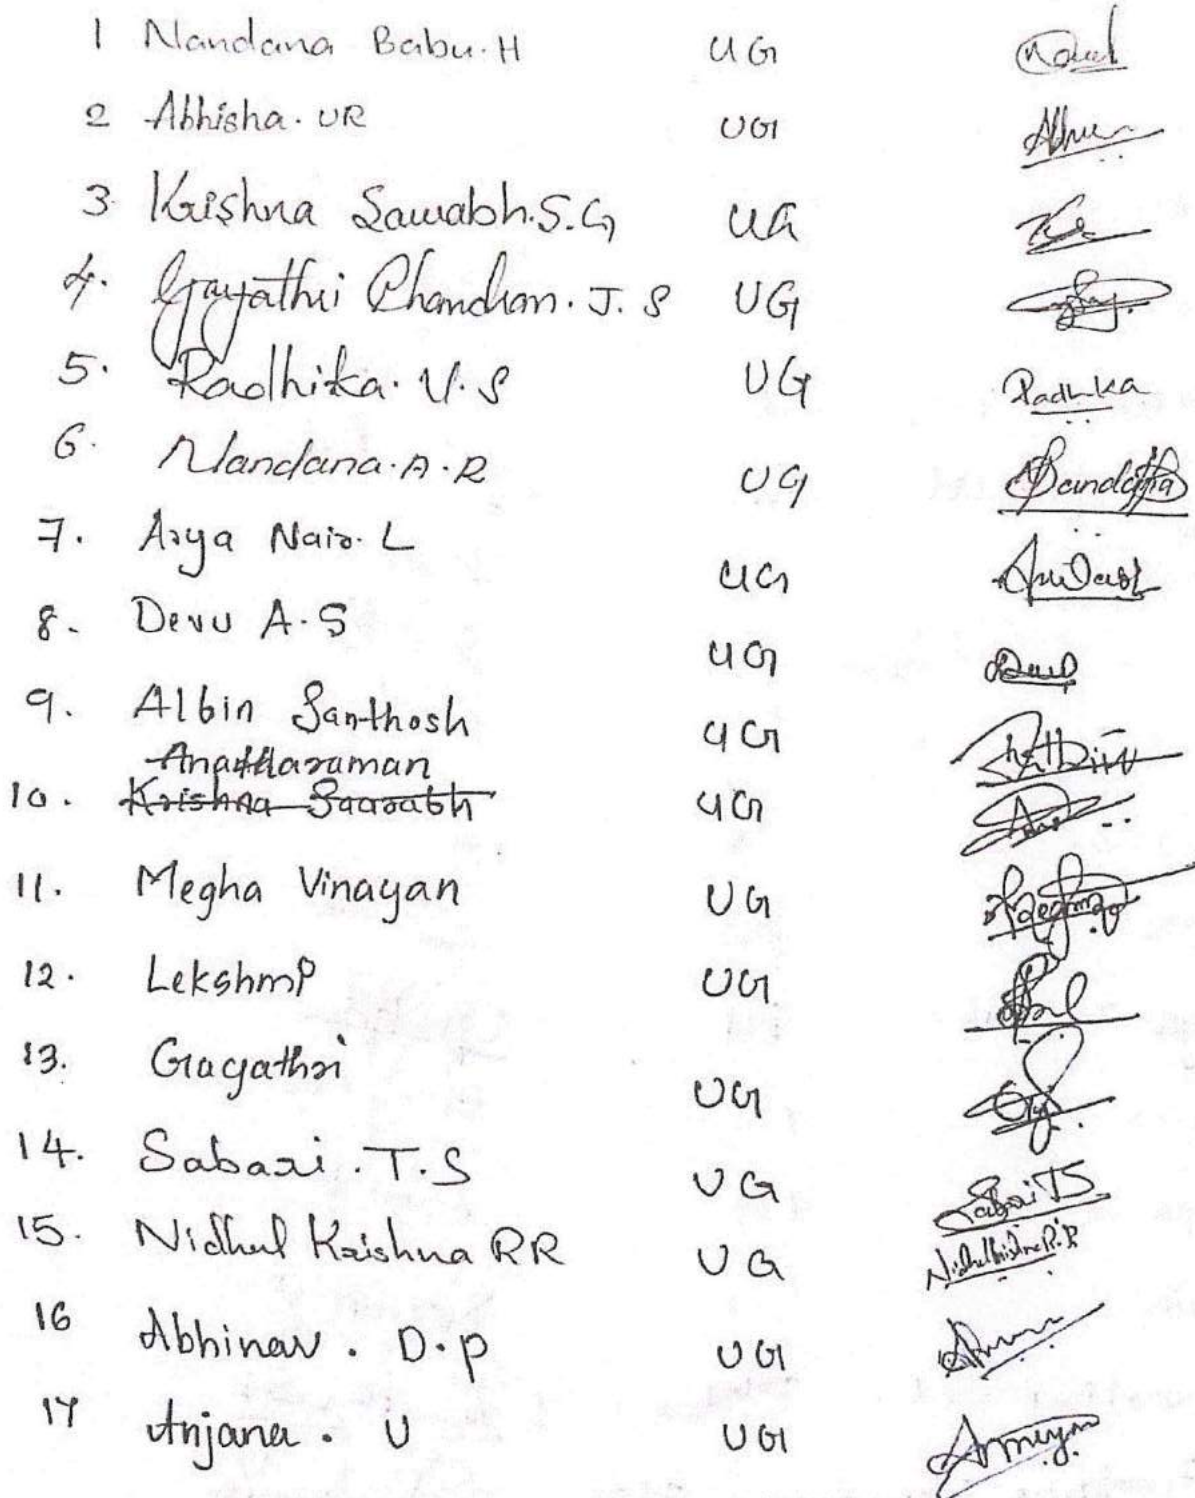 1 Nandana Babu.H UG
2 Abhisha. UR UG
3 Krishna Saurabh.S.G UG
4. Gayathri Chandran. J. S UG
5. Radhika. V. S UG Radhika
6. Nandana. A. R UG Nandana
7. Arya Nair. L UG
8. Devu A. S UG
9. Albin Santhosh UG
Anantharaman
10. Krishna Saarabh UG
11. Megha Vinayan UG
12. Lekshmi UG
13. Gayathri UG
14. Sabari. T. S UG Sabari TS
15. Nidhul Krishna RR UG Nidhulkrishna R.R
16 Abhinav. D. P UG
17 Anjana. U UG